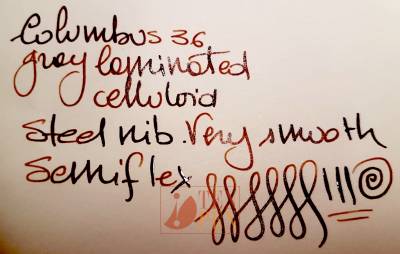 Columbus 36
gray laminated
celluloid
Steel nib. Very smooth
Semiflex